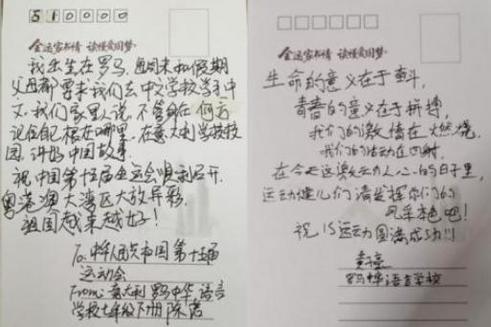 510000
全运家书情 读懂爱国梦
我出生在罗马,每周末和假期
父母都要求我们去中文学校学习中
文。我们家里人说,不管身在何方
记住自己根在哪里。在意大利学校校
园,讲好中国故事。
祝中国第十五届全运会顺利召开,
粤港澳大湾区大放异彩,
祖国越来越好!
To:中华人民共和国第十五届
运动会
From:意大利罗马中华语言
学校七年级下册 陈诺
全运家书情 读懂爱国梦
生命的意义在于奋斗,
青春的意义在于拼搏,
我们的激情在燃烧,
我们的活动在四射,
在今天这激动人心的日子里,
运动健儿们请发挥你们的
风采本色吧!
祝15运动圆满成功!!!
罗马中华语言学校